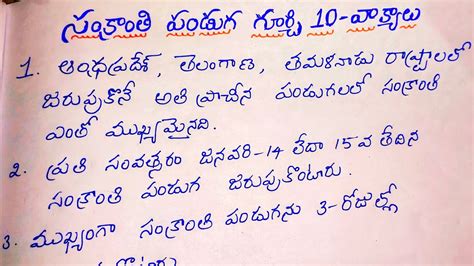 సంక్రాంతి పండుగ గూర్చి 10-వాక్యాలు
1. ఆంధప్రదేశ్, తెలంగాణ, తమళనాడు రాష్ట్రాలలో
జరుపుకొనే అతి ప్రాచీన పండుగలలో సంక్రాంతి
ఎంతో ముఖ్యమైనది.
2. ప్రతి సంవత్సరం జనవరి-14 లేదా 15వ తేదిన
సంక్రాంతి పండుగ జరుపుకొంటారు.
3. ముఖ్యంగా సంక్రాంతి పండుగను 3-రోజుల్లే